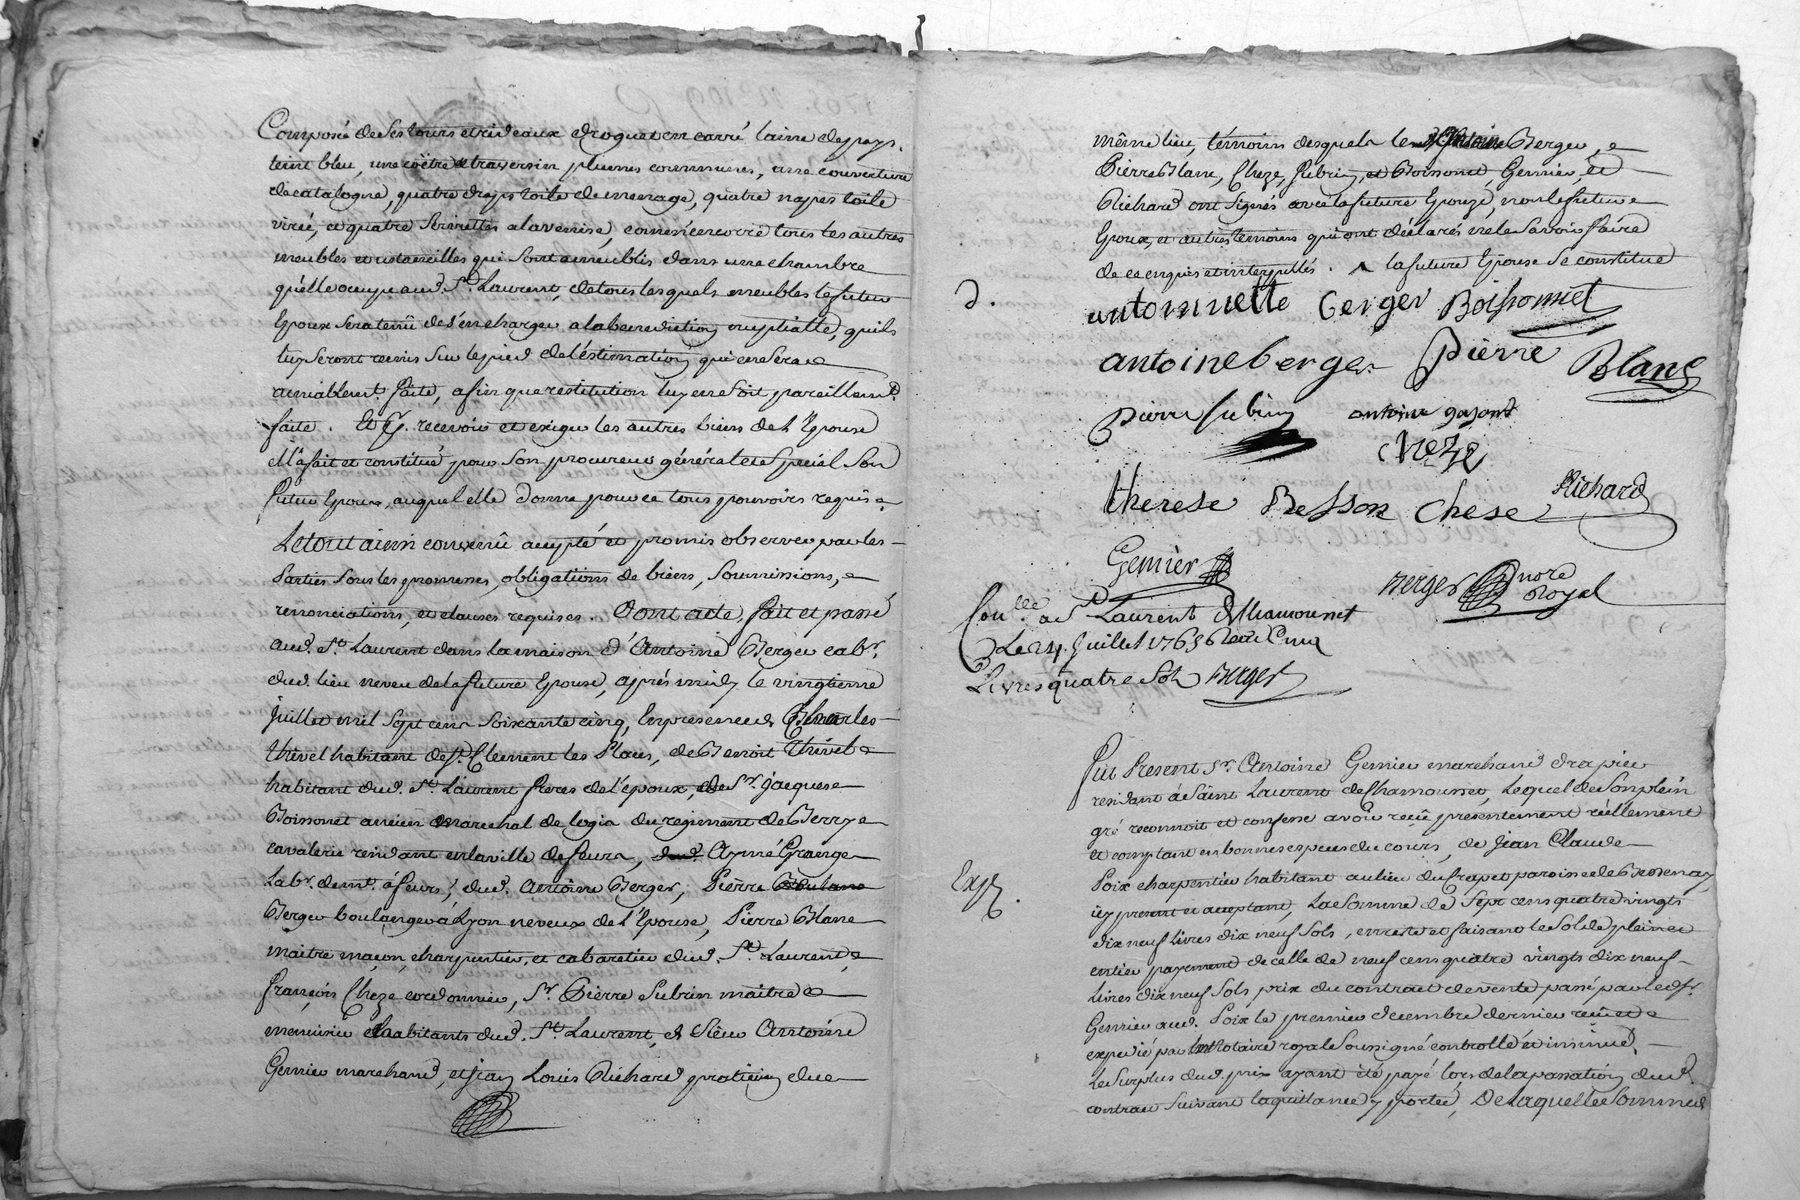 Composé de ses tours et rideaux droguet en carré laine de pays,
teint bleu, une coëtre et traversin plumes communes, une couverture
de catalogne, quatre draps toile de menage, quatre napes toile
virée, et quatre serviettes a la venise, comme encore tous les autres
meubles et ustancilles qui sont ameublis dans une chambre
qu'elle occupe aud. St. Laurent, de tous lesquels meubles le futur
Epoux sera tenû de s'en charger a la benediction nuptialle, qu'ils
luy seront remis sur le pied de l'éstimation qui en sera
amiablemt. faite, afin que restitution luy en soit pareillemt.
faite. Et p. recevoir et exiger les autres biens de l'Epouse
Ell'a fait et constitué pour son procureur général et spécial son
futur Epoux, auquel elle donne pour ce tous pouvoirs requis
Le tout ainsi convenû accepté et promis observer par les
Parties sous les promesses, obligations de biens, soumissions,
renonciations, et clauses requises. Dont acte, fait et passé
aud. St. Laurent dans la maison d'Antoine Berger cabr.
dud. lieu neveu de la future Epouse, après midy le vingtieme
Juillet mil sept cens soixante cinq, En presence de Charles
thivel habitant de St. Clement les Places, de Benoit Thivel
habitant dud. St. Laurent freres de l'époux, de Sr. Jacques
Boissonet ancien marechal de logis du regiment de Berry
cavalerie residant en la ville de feurs, Aymé Grange
Labr. demt. à feurs, dud. Antoine Berger, Pierre
Berger boulanger à Lyon neveux de l'Epouse, Pierre Blanc
maitre maçon, charpentier, et cabaretier dud. St. Laurent,
françois Cheze cordonnier, Sr. Pierre Subrin maitre
menuisier habitants dud. St. Laurent, et Sieur Antoine
Gemier marchand, et Jean Louis Richard praticien du
même lieu, témoins desquels led. Antoine Berger,
Pierre Blanc, Cheze, Subrin, et Boissonet, Gemier, et
Richard ont signés avec la future Epouse, non le futur
Epoux, et autres temoins qui ont déclarés ne le savoir faire
de ce enquis et interpellés. la future Epouse se constitue
D.
antoinnette Berger Boissonnet
antoine berger pierre Blanc
pierre subrin antoine gajont
cheze
therese Besson Chese Richard
Gemier
Berger nore royal
Conllé a St Laurent de Chamousset
Le 24. Juillet 1765 Reçu Cinq
Livres quatre sols Berger
Fut Present Sr. Antoine Gemier marchand drapier
residant à Saint Laurent de Chamousset, Lequel de son plein
gré reconnoit et confesse avoir reçû presentement réellement
et comptant en bonnes especes du cours, de Jean Claude
Poix charpentier habitant au lieu du frapet paroisse de Bressenay,
icy present et acceptant, La somme de sept cens quatre vingts
dix neuf livres dix neuf sols, en reste et faisant le solde plein et
entier payement de celle de neuf cens quatre vingts dix neuf
Livres dix neuf sols prix du contract de vente passé par led. Sr.
Gemier aud. Poix le premier decembre dernier reçû et
Exp.
expedié par le Notaire royal soussigné controllé et insinué,
Le surplus dud. prix ayant été payé lors de la passation dud.
contract suivant la quittance y portée, De laquelle somme de